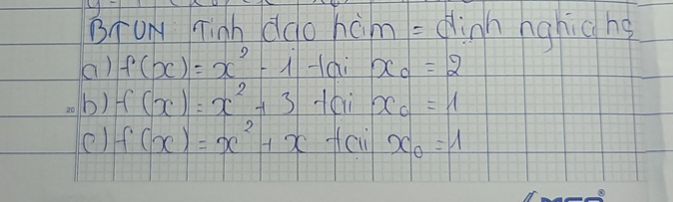 BTVN Tính đạo hàm = định nghĩa hs
a) f(x) = x² - 1 tại x₀ = 2
b) f(x) = x² + 3 tại x₀ = 1
c) f(x) = x² + x tại x₀ = 1